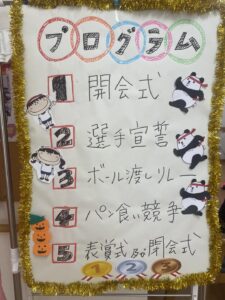 プログラム
1 開会式
2 選手宣誓
3 ボール渡しリレー
4 パン食い競争
5 表賞式及び閉会式
1 2 3